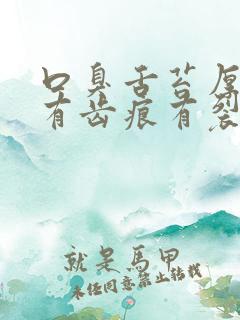 口臭舌苔厚
有齿痕有裂
就是馬甲
未经同意禁止转载